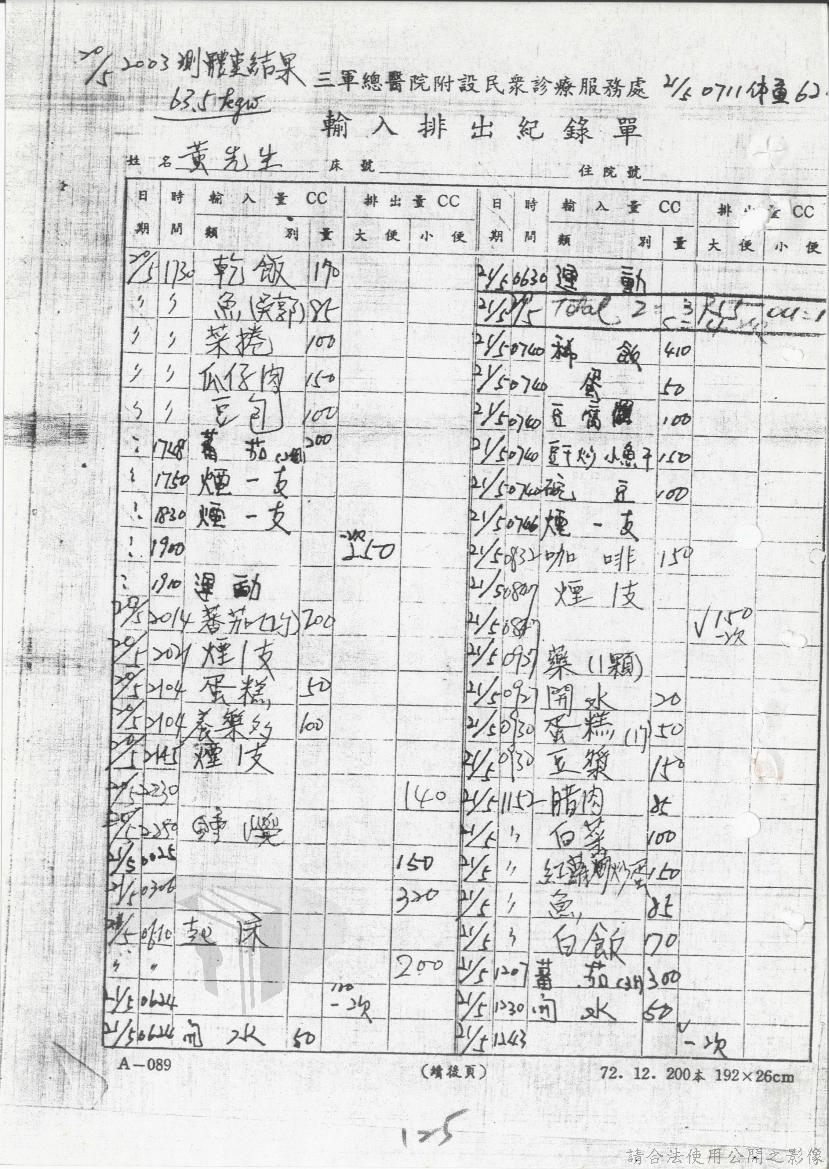 20/5 2003 測體重結果
63.5 kgw
三軍總醫院附設民眾診療服務處 21/5 0711 体重 62.
輸入排出紀錄單
姓名 黃先生 床號 住院號
日期 時間 輸入量 CC 類別 量 排出量 CC 大便 小便
20/5 1730 乾飯 170
〃 〃 魚 85
〃 〃 菜捲 100
〃 〃 瓜仔肉 150
〃 〃 豆包 100
〃 1748 蕃茄 200
〃 1750 煙一支
〃 1830 煙一支
〃 1900 一次 250
〃 1910 運動
20/5 2014 蕃茄 200
20/5 2021 煙1支
20/5 2104 蛋糕 50
20/5 2104 養樂多 100
20/5 2145 煙1支
20/5 2230 140
20/5 2250 睡覺
21/5 0025 150
21/5 0306 320
21/5 0610 起床
〃 〃 200
21/5 0624 一次
21/5 0624 開水 50
日期 時間 輸入量 CC 類別 量 排出量 CC 大便 小便
21/5 0630 運動
21/5 Total
21/5 0740 稀飯 410
21/5 0740 蛋 50
21/5 0740 豆腐 100
21/5 0740 豆干炒小魚干 150
21/5 0740 豆 100
21/5 0746 煙一支
21/5 0832 咖啡 150
21/5 煙1支
21/5 √150 一次
21/5 0927 藥(11顆)
21/5 0927 開水 20
21/5 0930 蛋糕 50
21/5 0930 豆漿 150
21/5 1152 腊肉 85
21/5 〃 白菜 100
21/5 〃 紅蘿蔔炒蛋 150
21/5 〃 魚 85
21/5 〃 白飯 170
21/5 1207 蕃茄 300
21/5 1230 開水 50
21/5 1243 √一次
A-089 (續後頁) 72.12.200本 192×26cm
125
請合法使用公開之影像